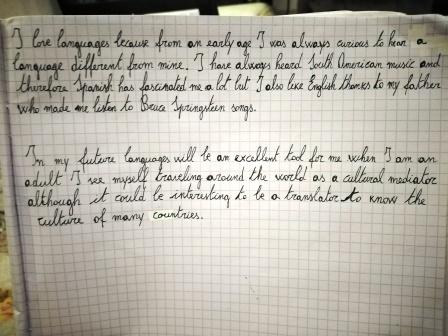 I love languages because from an early age I was always curious to hear a
language different from mine. I have always heard South American music and
therefore Spanish has fascinated me a lot but I also like English thanks to my father
who made me listen to Bruce Springsteen songs.
In my future languages will be an excellent tool for me when I am an
adult I see myself traveling around the world as a cultural mediator
although it could be interesting to be a translator to know the
culture of many countries.